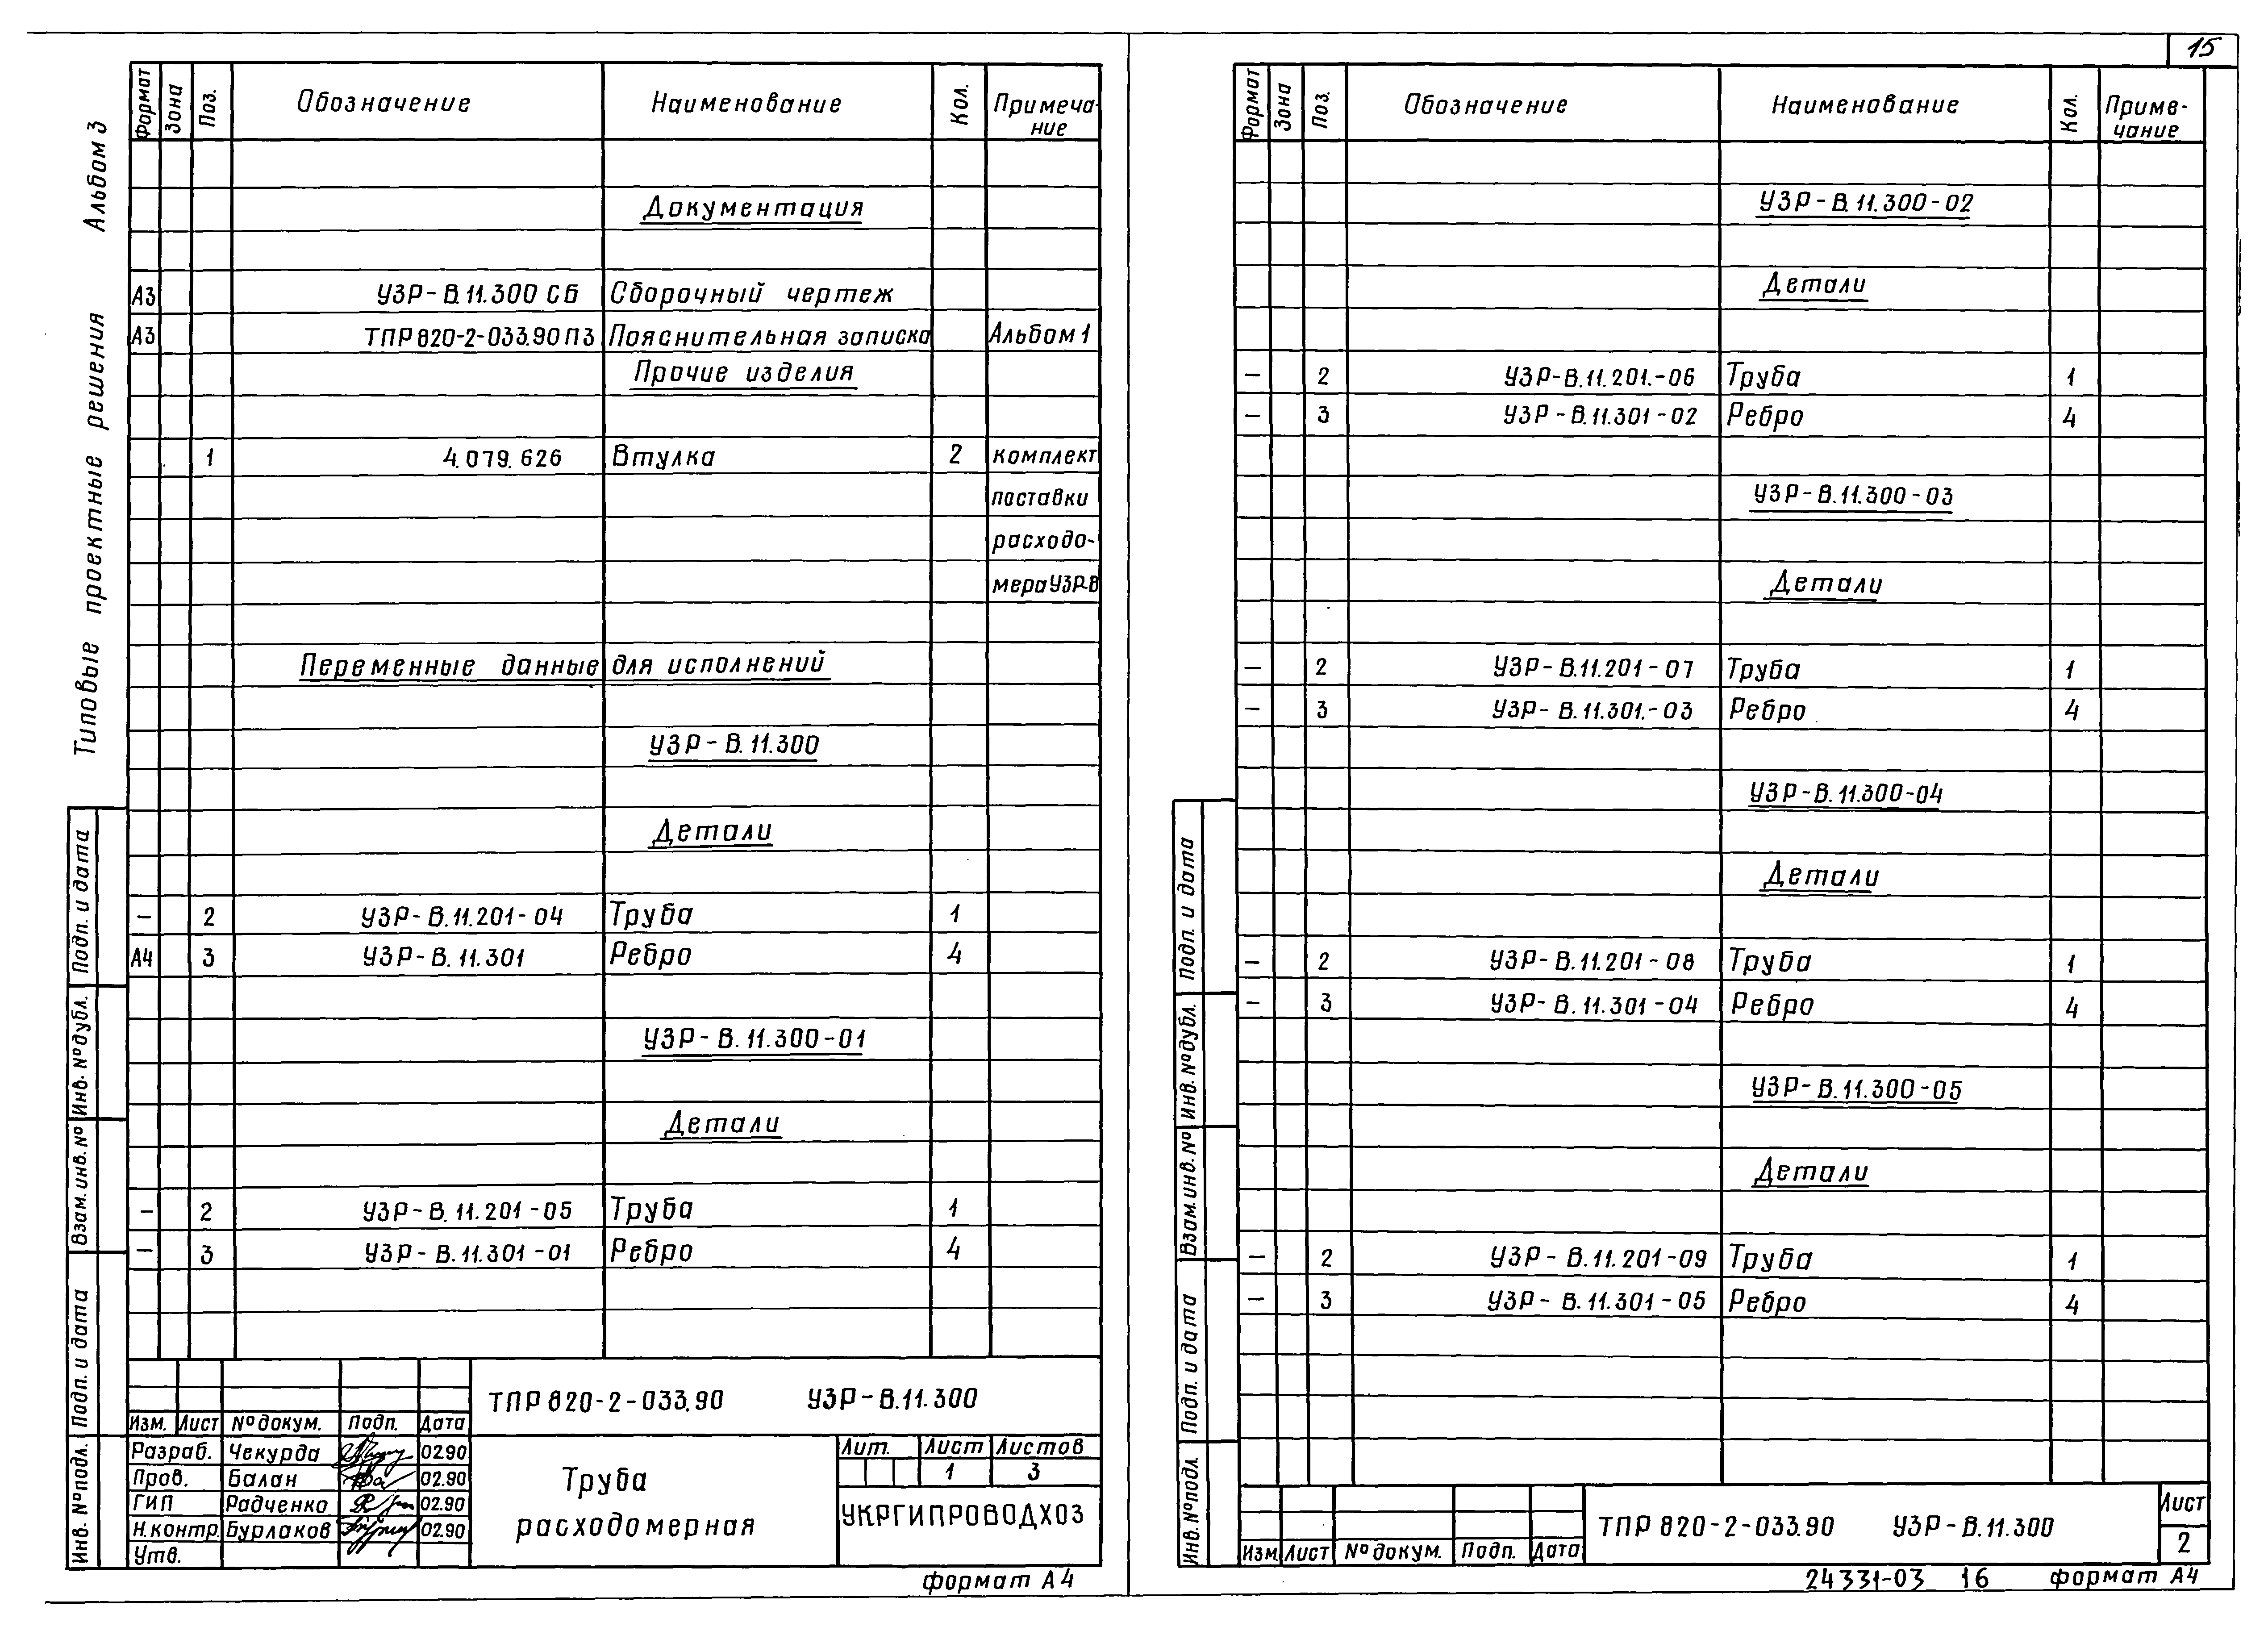 15
Типовые проектные решения Альбом 3
Формат Зона Поз. Обозначение Наименование Кол. Примеча-
ние
Документация
А3 УЗР-В.11.300 СБ Сборочный чертеж
А3 ТПР 820-2-033.90 ПЗ Пояснительная записка Альбом 1
Прочие изделия
1 4.079.626 Втулка 2 комплект
поставки
расходо-
мера УЗР-В
Переменные данные для исполнений
УЗР-В.11.300
Детали
– 2 УЗР-В.11.201-04 Труба 1
А4 3 УЗР-В.11.301 Ребро 4
УЗР-В.11.300-01
Детали
– 2 УЗР-В.11.201-05 Труба 1
– 3 УЗР-В.11.301-01 Ребро 4
Подп. и дата
Инв. № дубл.
Взам. инв. №
Подп. и дата
Инв. № подл.
ТПР 820-2-033.90 УЗР-В.11.300
Изм. Лист № докум. Подп. Дата
Разраб. Чекурда 02.90
Пров. Балан 02.90
ГИП Радченко 02.90
Н.контр. Бурлаков 02.90
Утв.
Труба
расходомерная
Лит. Лист Листов
1 3
УКРГИПРОВОДХОЗ
формат А4
Формат Зона Поз. Обозначение Наименование Кол. Приме-
чание
УЗР-В.11.300-02
Детали
– 2 УЗР-В.11.201.-06 Труба 1
– 3 УЗР-В.11.301-02 Ребро 4
УЗР-В.11.300-03
Детали
– 2 УЗР-В.11.201-07 Труба 1
– 3 УЗР-В.11.301.-03 Ребро 4
УЗР-В.11.300-04
Детали
– 2 УЗР-В.11.201-08 Труба 1
– 3 УЗР-В.11.301-04 Ребро 4
УЗР-В.11.300-05
Детали
– 2 УЗР-В.11.201-09 Труба 1
– 3 УЗР-В.11.301-05 Ребро 4
Подп. и дата
Инв. № дубл.
Взам. инв. №
Подп. и дата
Инв. № подл.
Изм. Лист № докум. Подп. Дата
ТПР 820-2-033.90 УЗР-В.11.300
Лист
2
24331-03 16 формат А4